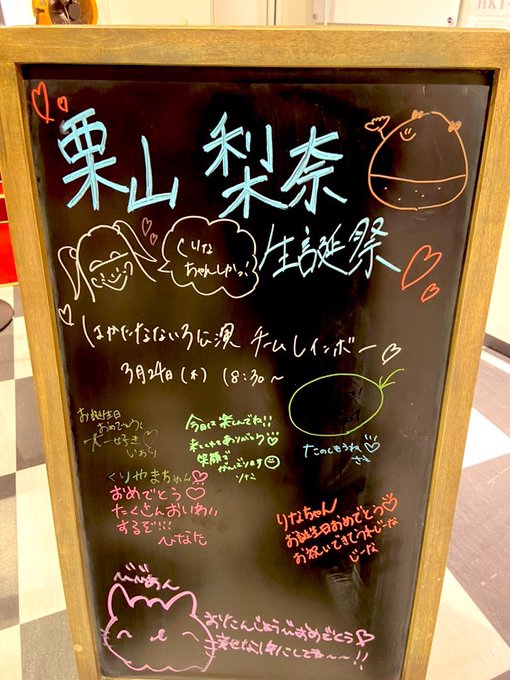 栗山 梨奈
生誕祭
くりな
ちゃんしかっ!
はかたなないろ公演 チームレインボー
3月24日(木) 18:30〜
お誕生日
おめでとう
大一好き
いおり
今日は楽しんでね!!
来てくれてありがとう
笑顔で
がんばります
りな
たのしもうね
くりやまちゃん
おめでとう
たくさんおいわい
するぞ!!!
ひなた
りなちゃん
お誕生日おめでとう
お祝いできてうれじーな
じーな
びびあん
おたんじょうびおめでとう
幸せな1年にしてね〜〜!!